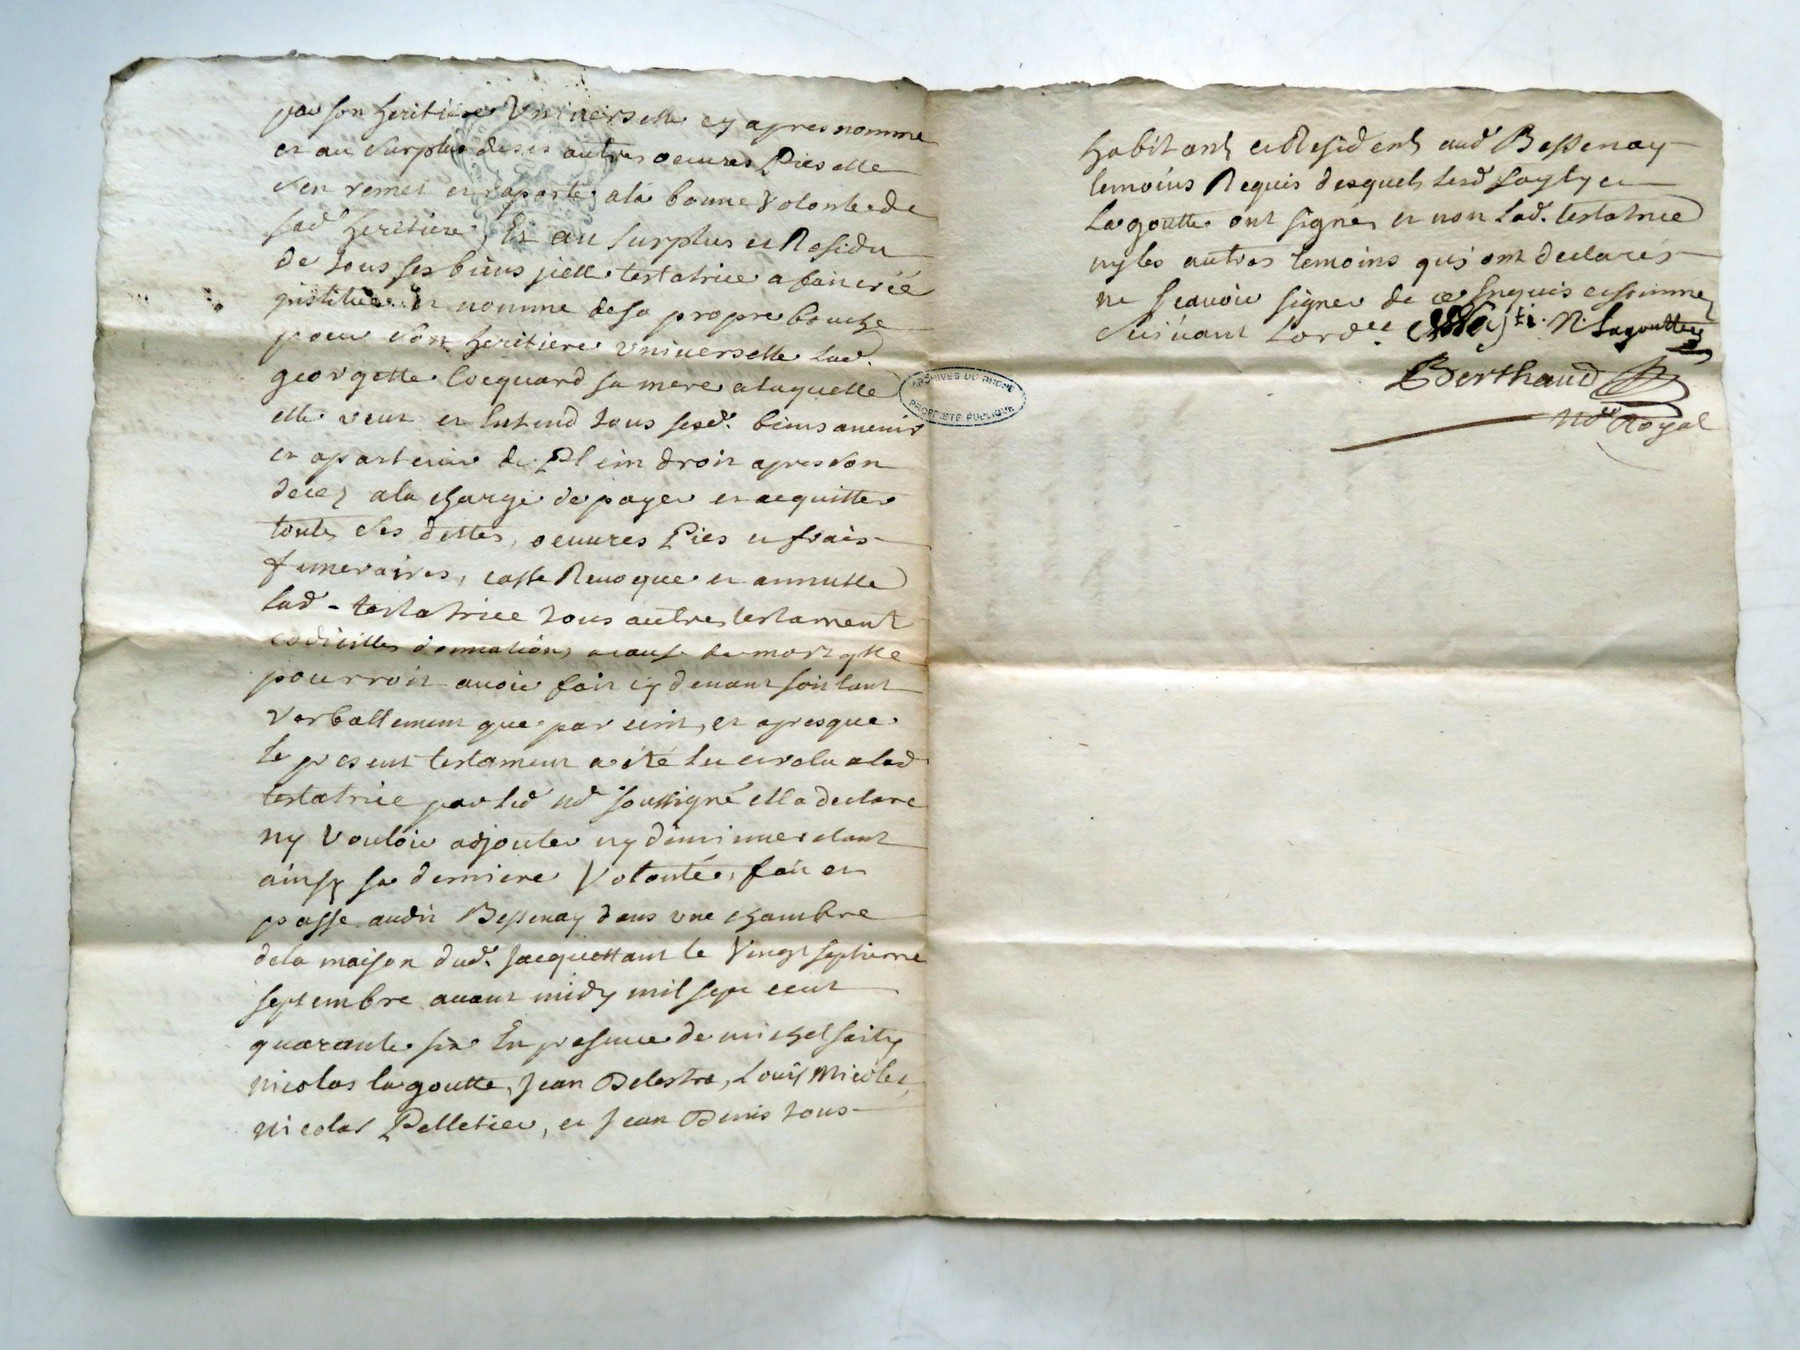 par son heritiere Universelle cy apres nommé
et au surplus de ses autres oeuvres Pies elle
s'en remet et raporte a la bonne Volonté de
sad heritiere, Et au surplus et Residu
de tous ses biens jcelle testatrice a fait créé
jnstitué et nommé de sa propre bouche
pour son heritiere universelle lad.
georgette Cocquard sa mere a laquelle
elle veut et Entend tous sesd. biens avenir
et apartenir de Plein droit apres son
decez a la charge de payer et acquitter
toutes ses dettes, oeuvres Pies et frais
funeraires, casse Revoque et annulle
Lad - testatrice tous autres testament
codicilles donnations a cause de mort qlle
pourroit avoir fait cy devant soit tant
verballement que par ecrit, et apres que
le present testament a été lu et relu a lad
testatrice par led nd soussigné ell a declaré
ny Vouloir adjouter ny diminuer etant
ainsy sa derniere Volonté, fait et
passé audit Bessenay dans une chambre
de la maison dud. Jacquettant le Vingt septieme
septembre avant midy mil sept cent
quarante six En presence de michel saity
nicolas lagoutte, Jean Delestra, Louis Micolet,
nicolas Pelletier, et Jean Denis tous
habitants et Residents aud Bessenay
temoins Requis desquels lesd sayty et
Lagoutte ont signés et non Lad. testatrice
ny les autres temoins qui ont declarés
ne scavoir signer de ce Enquis et sommez
suivant Lord.ce N. Lagoutte
Berthaud
nd Royal
ARCHIVES DU RHONE
PROPRIETE PUBLIQUE